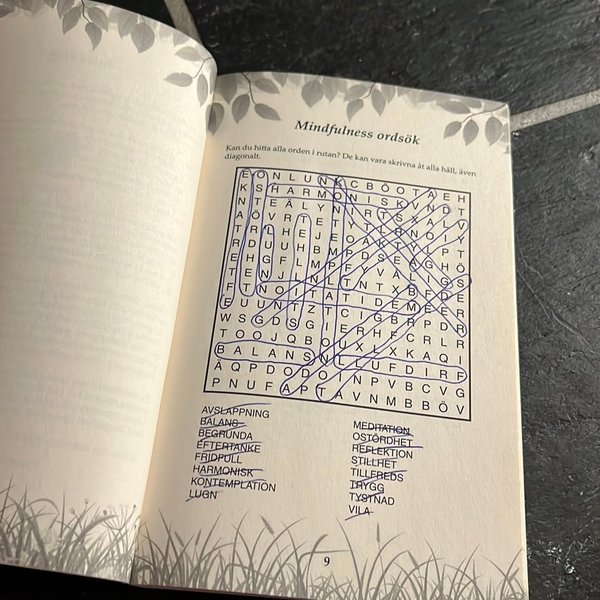 Mindfulness ordsök
Kan du hitta alla orden i rutan? De kan vara skrivna åt alla håll, även
diagonalt.
E O N L U N K C B Ö O T A E H
K S H A R M O N I S K V N D T
N T E Ä L Y N I R T S X A L V
F T N O I T A T I D E M E E R
E U U N T Z T C I G B R P D R
W S G D S G I E R H F C R L R
T O O J Q B O U X L X K A Q I
B A L A N S N L L U F D I R F
Ä Q P D O D O I N P V B C V G
P N U F A P T A V N M B B Ö V
AVSLAPPNING
BALANS
BEGRUNDA
EFTERTANKE
FRIDFULL
HARMONISK
KONTEMPLATION
LUGN
MEDITATION
OSTÖRDHET
REFLEKTION
STILLHET
TILLFREDS
TRYGG
TYSTNAD
VILA
9